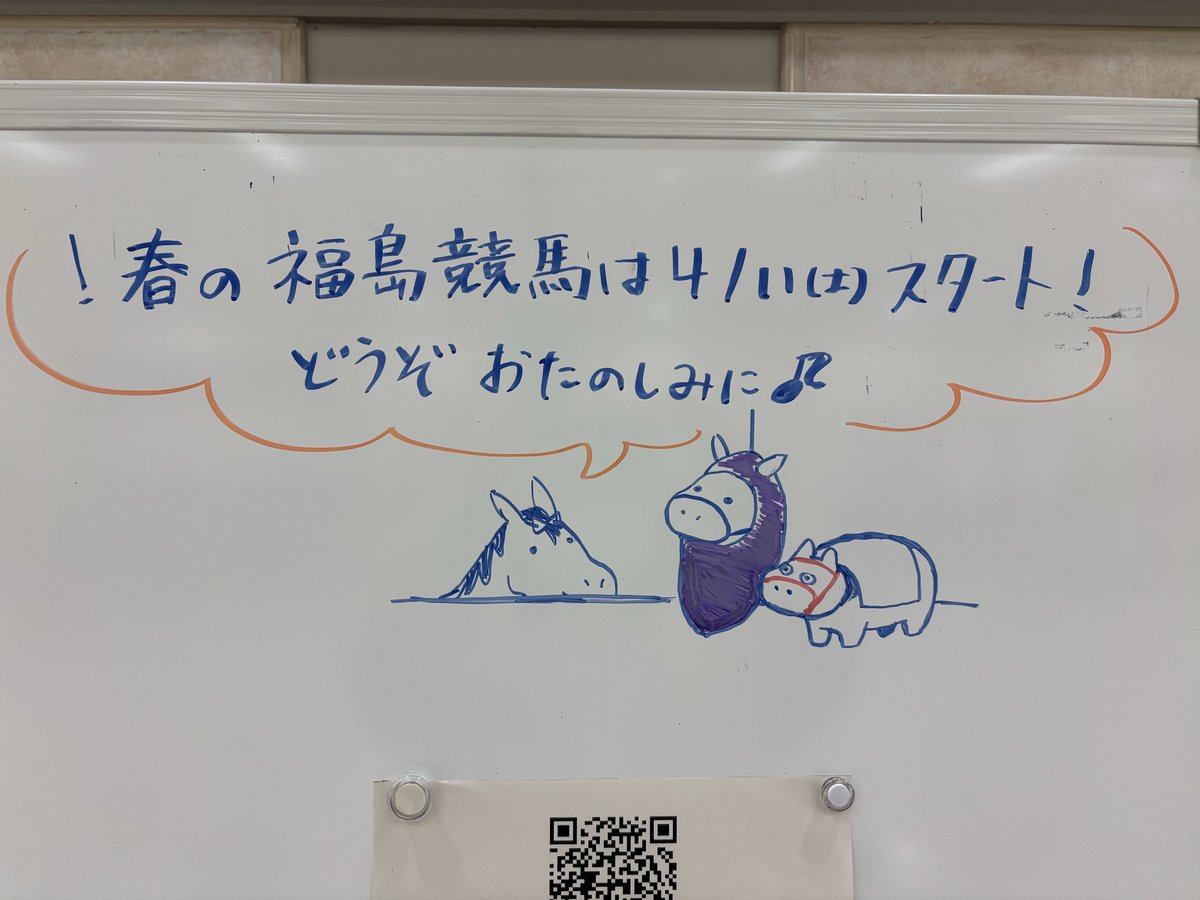 ！春の福島競馬は4/11(土)スタート！
どうぞおたのしみに♪